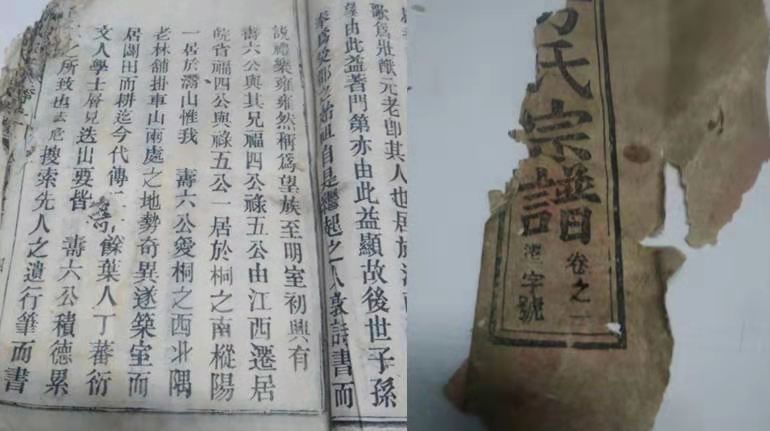 歌爲壯猷元老卽其人也居於
由此益著門第亦由此益顯故後世子孫
之始祖自是繼起之人敦詩書而
說禮樂雍雍然稱爲望族至明室初興有
壽六公與其兄福四公祿五公由江西遷居
皖省福四公與祿五公一居於桐之南樅陽
一居於潛山惟我 壽六公愛桐之西北隅
老林舖掛車山兩處之地勢奇異遂築室而
居闢田而耕迄今代傳 餘葉人丁蕃衍
文人學士屢見迭出要皆 壽六公積德累
之所致也 搜索先人之遺行筆而書
氏宗譜
卷之一
字號